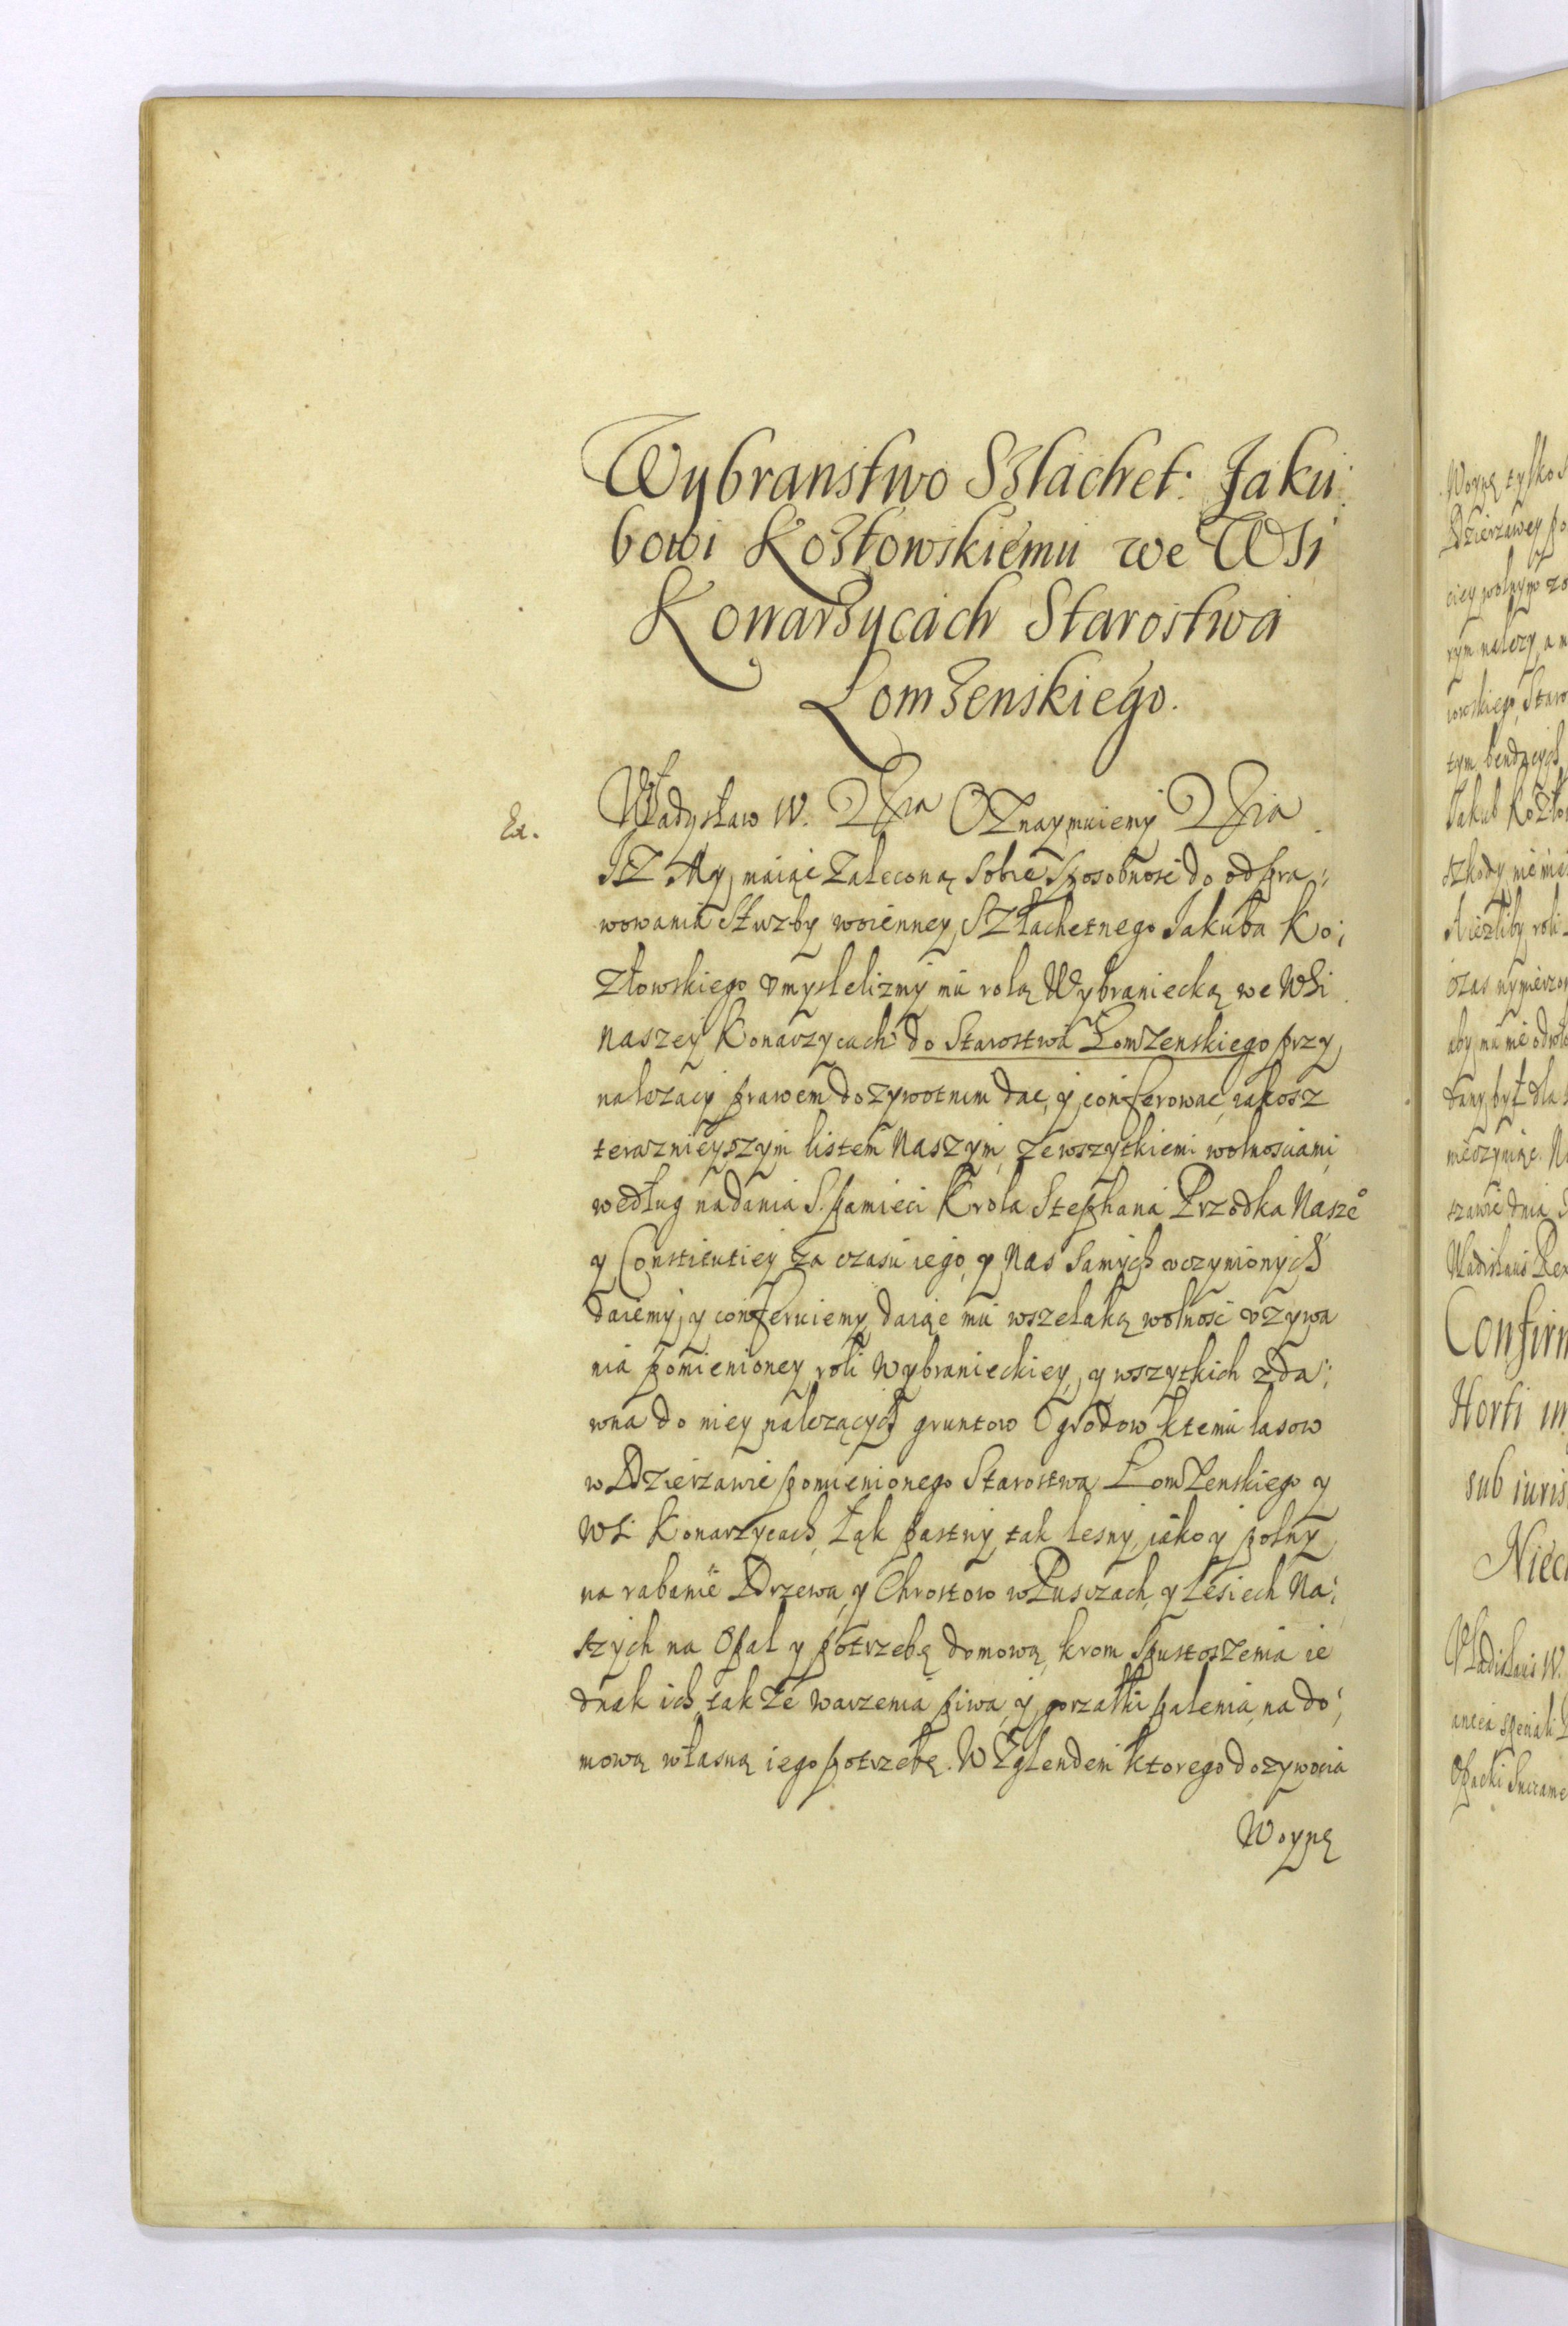 Wybranstwo Szlachet: Jaku:
bowi Kozłowskiemu we Wsi
Konarzycach Starostwa
Łomzenskiego.
Ex.
Władysław IV. Oznaymuiemy
Isz My, maiąc Zaleconą Sobie Sposobnosc do odpra:
wowania Słuzby woienney, Szlachetnego Jakuba Ko:
złowskiego vmyslelizmy mu rolą Wybraniecką we Wsi
Naszey Konarzycach do Starostwa Łomzenskiego przy
nalezacy prawem dozywotnim dac, y conferowac, iakosz
teraznieyszym listem Naszym, ze wszytkiemi wolnosciami
według nadania S. pamieci Krola Stephana Przodka Nasze°
y Constitutiey za czasu iego, y Nas Samych vczynionych
daiemy, y conferuiemy, daiąc mu wszelaką wolnosc vzywa
nia pomienioney roli Wybranieckiey, y wszytkich zda:
wna do niey nalezących gruntow Ogrodow ktemu lasow
w Dzierzawie pomienionego Starostwa Łomzenskiego y
Wsi Konarzycach, Łąk pastwy, tak lesny, iako y polny
na rabanie Drzewa, y Chrostow w Pusczach, y Lesiech Na:
szych na Opał y potrzebę domową, krom Spustoszenia ie
dnak ich, takze warzenia piwa, y gorzałki palenia, na do:
mową własną iego potrzebę. Wzglendem ktorego dozywocia
Woynę
Woynę tylko
Dzierzawey
wolnym
rym nalezy, a
owskiego, Staro
tym bendzcych
Jakub Kozło
szkody nie
roli
czas
aby mu nie
dany był dla
nieczyniąc.
szawie dnia
Vladislaus Rex
Confirm
Horti in
sub iuris
Niec
Vladislaus IV.